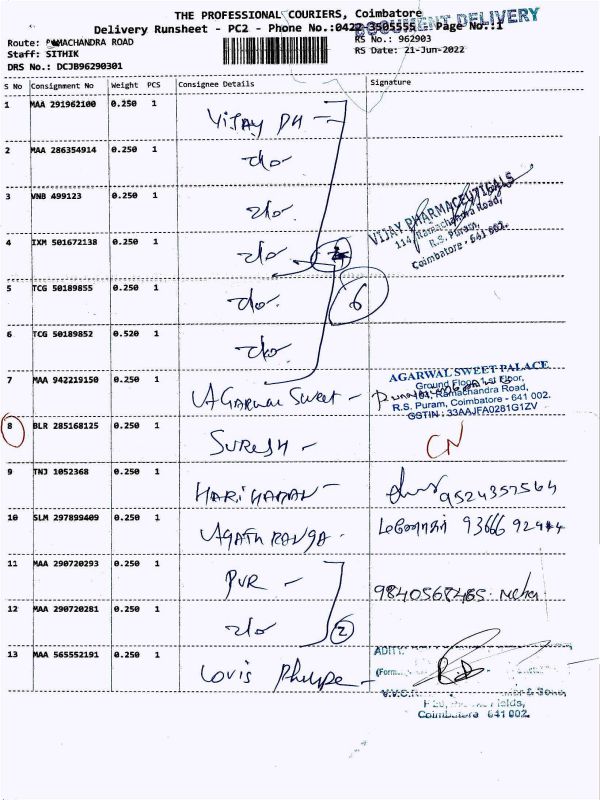 THE PROFESSIONAL COURIERS, Coimbatore
DOCUMENT DELIVERY
Delivery Runsheet - PC2 - Phone No.:0422 3505555 Page No.:1
Route: RAMACHANDRA ROAD
RS No.: 962903
Staff: SITHIK
RS Date: 21-Jun-2022
DRS No.: DCJB96290301
S No Consignment No Weight PCS Consignee Details Signature
1 MAA 291962100 0.250 1 VIJAY PH
2 MAA 286354914 0.250 1 do
3 VNB 499123 0.250 1 do
VIJAY PHARMACEUTICALS
114, Ramachandra Road,
R.S. Puram,
Coimbatore - 641 002.
4 IXM 501672138 0.250 1 do
5 TCG 50189855 0.250 1 do
6
6 TCG 50189852 0.520 1 do
7 MAA 942219150 0.250 1 AGARWAL SWEET -
AGARWAL SWEET PALACE
Ground Floor, 1st Floor,
Ramachandra Road,
R.S. Puram, Coimbatore - 641 002.
GSTIN : 33AAJFA0281G1ZV
8 BLR 285168125 0.250 1 SURESH - CN
9 TNJ 1052368 0.250 1 HARIHARAN - 9524357564
10 SLM 297899409 0.250 1
11 MAA 290720293 0.250 1 PVR -
9840568485
12 MAA 290720281 0.250 1 do 2
13 MAA 565552191 0.250 1 Lovis
ADITY
(Form
Coimbatore 641 002.